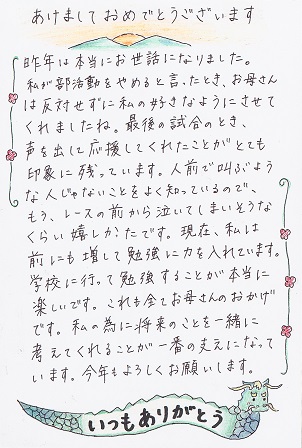 あけましておめでとうございます
昨年は本当にお世話になりました。
私が部活動をやめると言ったとき、お母さん
は反対せずに私の好きなようにさせて
くれましたね。最後の試合のとき、
声を出して応援してくれたことがとても
印象に残っています。人前で叫ぶよう
な人じゃないことをよく知っているので、
もう、レースの前から泣いてしまいそうな
くらい嬉しかたです。現在、私は
前にも増して勉強に力を入れています。
学校に行って勉強することが本当に
楽しいです。これも全てお母さんのおかげ
です。私の為に将来のことを一緒に
考えてくれることが一番の支えになって
います。今年もよろしくお願いします。
いつもありがとう